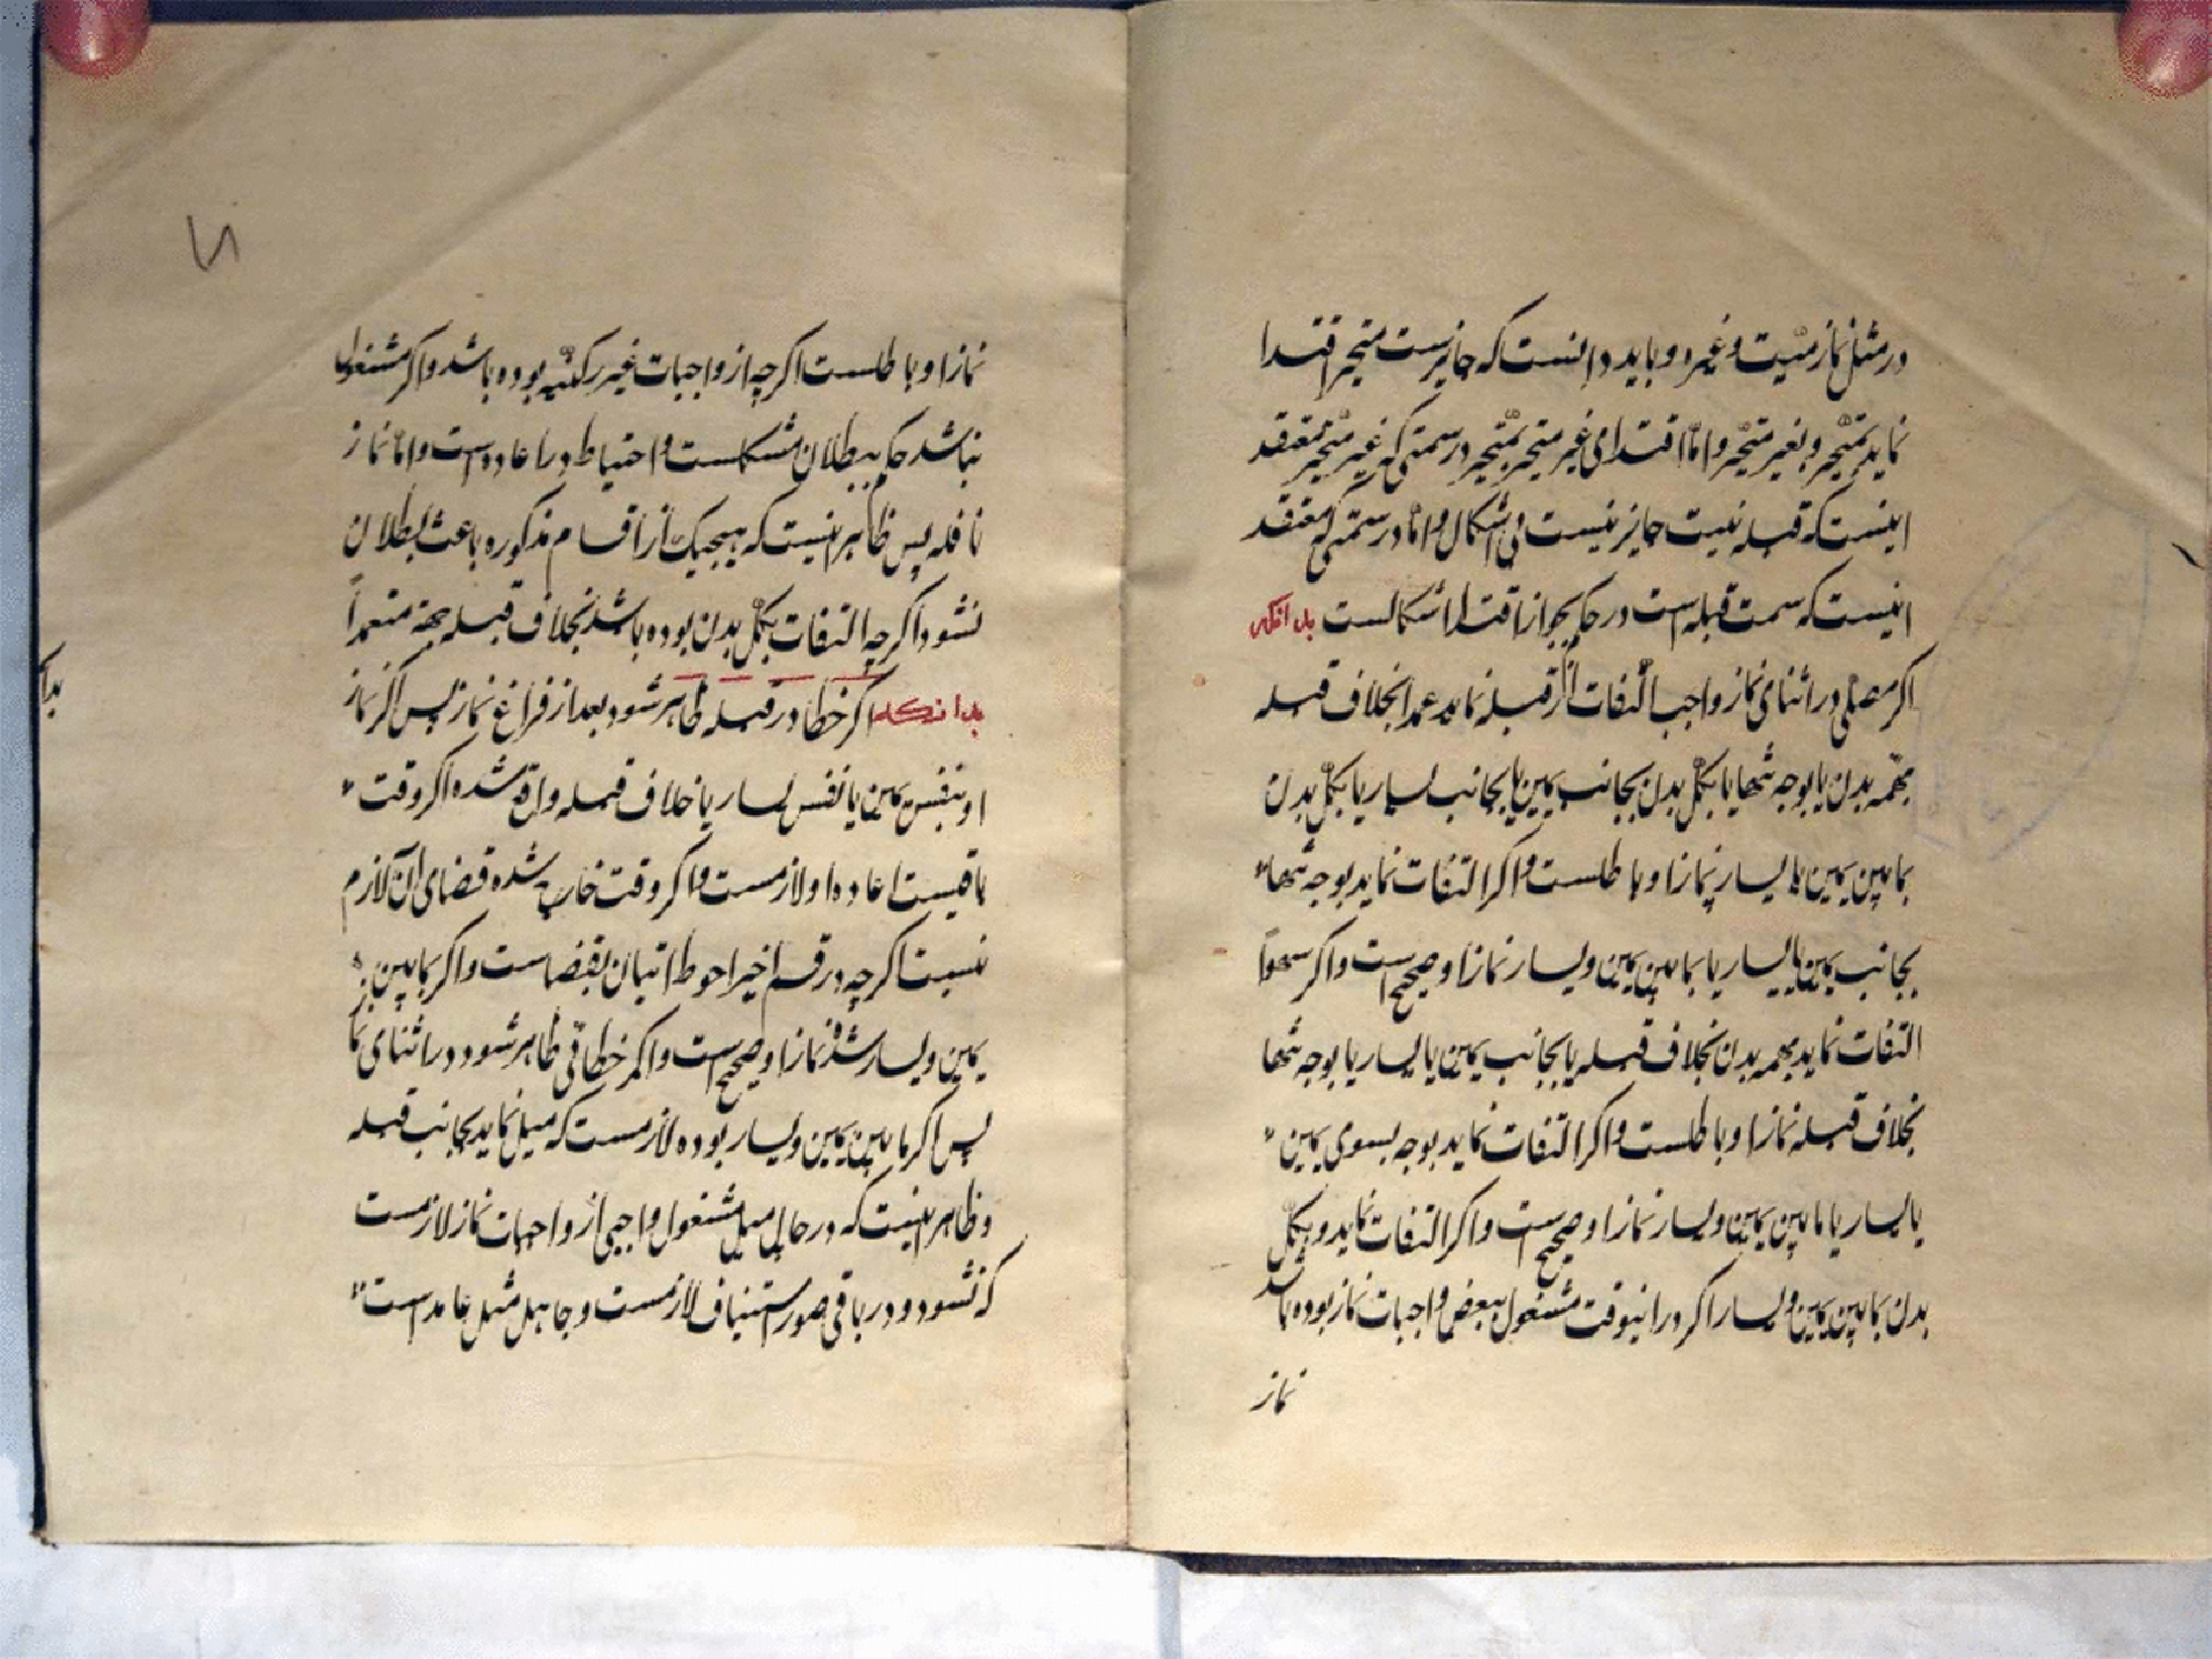 در مثل نماز میّت و غیره و باید دانست که جایزست متحیر اقتدا
نماید بمتحیّر و بغیر متحیّر و امّا اقتدای غیر متحیر بمتحیر در سمتی که غیر متحیر معتقد
اینست که قبله نیست جایز نیست بی اشکال و امّا در سمتی که معتقد
اینست که سمت قبله است در حکم بجواز اقتدا اشکالست بدانکه
اکر مصلی در اثنای نماز واجب التفات از قبله نماید عمدا بخلاف قبله
بهمه بدن یا بوجه تنها یا بکلّ بدن بجانب یمین یا بجانب یسار یا بکلّ بدن
بمابین یمین یا یسار نماز او باطلست و اکر التفات نماید بوجه تنها
بجانب یمین یا یسار یا بمابین یمین و یسار نماز او صحیح است و اکر سهواً
التفات نماید بهمه بدن بخلاف قبله یا بجانب یمین یا یسار یا بوجه تنها
بخلاف قبله نماز او باطلست و اکر التفات نماید بوجه بسوی یمین
یا یسار یا مابین یمین و یسار نماز او صحیح است و اکر التفات نماید و بکلّ
بدن بمابین یمین و یسار اکر در اینوقت مشغول ببعض واجبات نماز بوده باشد
نماز
نماز او باطلست اکرچه از واجبات غیر رکنیّه بوده باشد و اکر مشغول
نباشد حکم ببطلان مشکلست و احتیاط در اعاده است و امّا نماز
نافله پس ظاهر اینست که هیچیک از اقسام مذکوره باعث بطلان
نشود اکرچه التفات بکلّ بدن بوده باشد بخلاف قبله جهة متعمداً
بدانکه اکر خطا در قبله ظاهر شود بعد از فراغ نماز پس اکر نماز
او بنفس یمین یا نفس یسار یا خلاف قبله واقع شده اکر وقت
باقیست اعاده او لازمست و اکر وقت خارج شده قضای آن لازم
نیست اکرچه در قسم اخیر احوط اتیان بقضاست و اکر بمابین
یمین و یسار شد نماز او صحیح است و اکر خطا فی ظاهر شود در اثنای نماز
پس اکر مابین یمین و یسار بوده لازمست که میل نماید بجانب قبله
و ظاهر اینست که در حال میل مشغول واجبی از واجبات نماز لازمست
که نشود و در باقی صور استیناف لازمست و جاهل مثل عامد است